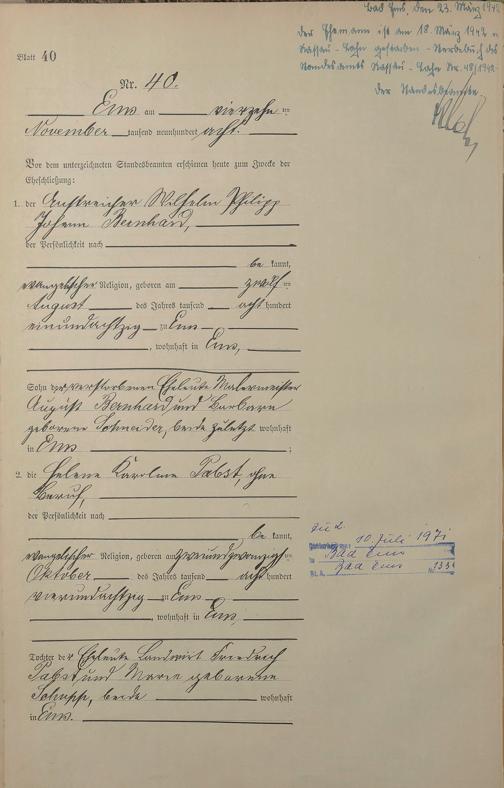 Bad Ems, den 23. März 1942
Der Ehemann ist am 18. März 1942 in
Nassau-Lahn gestorben - Sterbebuch des
Standesamts Nassau-Lahn Nr. 48/1942.
Der Standesbeamte.
Blatt 40
Nr. 40.
Ems am vierzehn ten
November tausend neunhundert acht.
Vor dem unterzeichneten Standesbeamten erschienen heute zum Zwecke der
Eheschließung:
1. der Anstreicher Wilhelm Philipp
Johann Bernhard,
der Persönlichkeit nach
be kannt,
evangelischer Religion, geboren am zwölf ten
August des Jahres tausend acht hundert
einundachtzig zu Ems
, wohnhaft in Ems,
Sohn der verstorbenen Eheleute Malermeister
August Bernhard und Barbara
geborene Schneider, beide zuletzt wohnhaft
in Ems ;
2. die Helene Karoline Pabst, ohne
Beruf,
der Persönlichkeit nach
be kannt,
evangelischer Religion, geboren am zweiundzwanzigsten
Oktober des Jahres tausend acht hundert
vierundachtzig zu Ems
, wohnhaft in Ems,
Tochter der Eheleute Landwirt Friedrich
Pabst und Marie geborene
Schupp, beide wohnhaft
in Ems.
10. Juli 1971
Bad Ems
Bad Ems